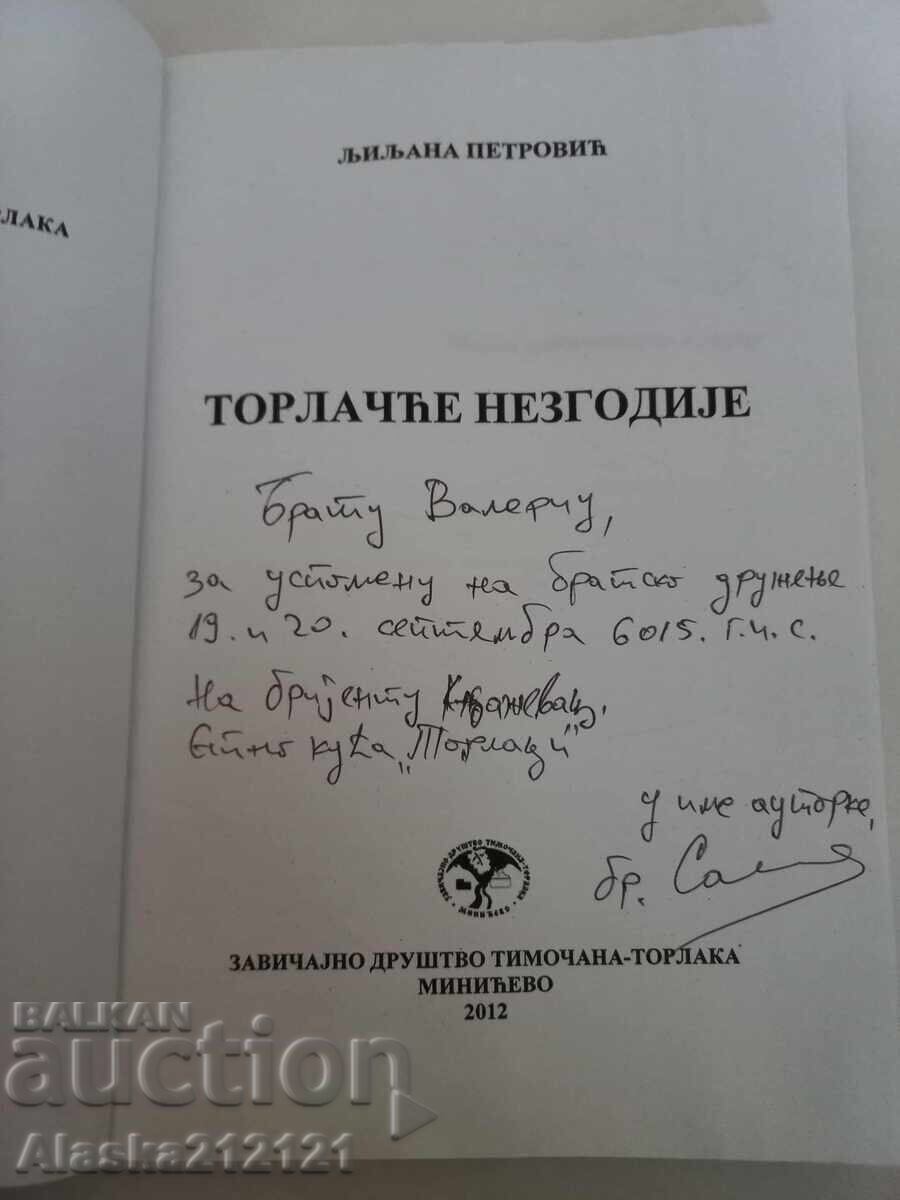 РЛАКА
ЉИЉАНА ПЕТРОВИЋ
ТОРЛАЧЋЕ НЕЗГОДИЈЕ
Брату Валерију,
за успомену на братско дружење
19. и 20. септембра 6015. г.и.с.
На оријенту Књажевац,
Етно кућа „Торлаци"
у име ауторке,
бр.
ЗАВИЧАЈНО ДРУШТВО ТИМОЧАНА-ТОРЛАКА
МИНИЋЕВО
ЗАВИЧАЈНО ДРУШТВО ТИМОЧАНА-ТОРЛАКА
МИНИЋЕВО
2012
BALKAN
auction
Alaska212121